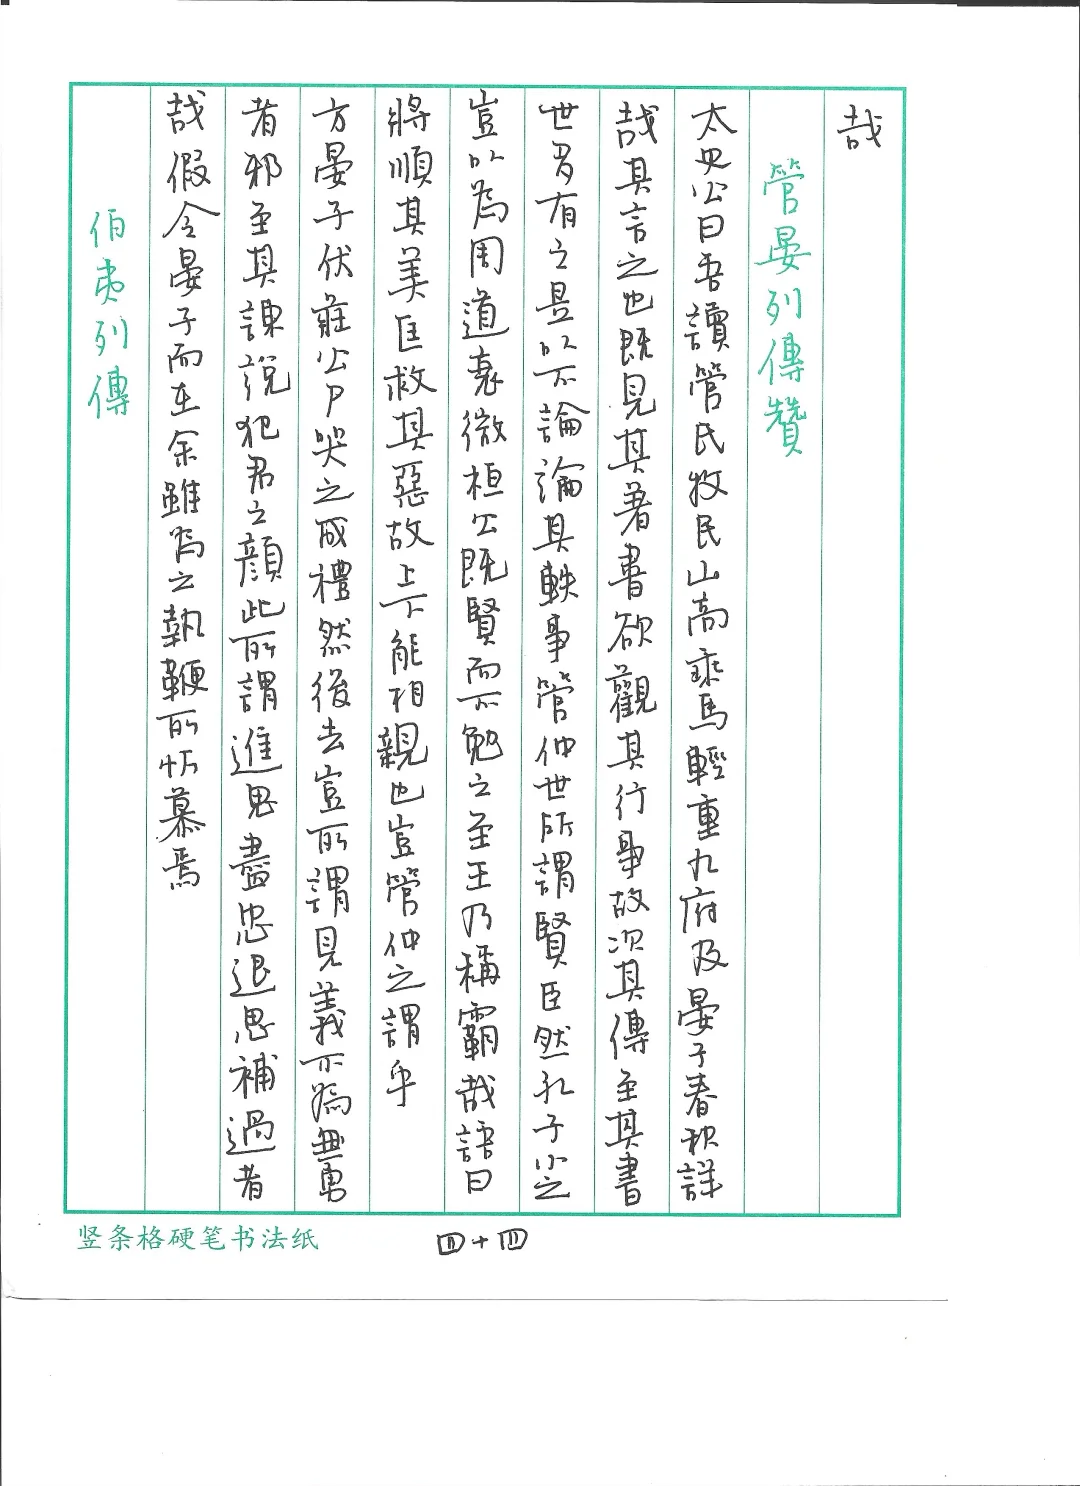 哉
管晏列傳贊
太史公曰吾讀管氏牧民山高乘馬輕重九府及晏子春秋詳
哉其言之也既見其著書欲觀其行事故次其傳至其書
世多有之是以不論論其軼事管仲世所謂賢臣然孔子小之
豈以為周道衰微桓公既賢而不勉之至王乃稱霸哉語曰
將順其美匡救其惡故上下能相親也豈管仲之謂乎
方晏子伏莊公尸哭之成禮然後去豈所謂見義不為無勇
者邪至其諫說犯君之顏此所謂進思盡忠退思補過者
哉假令晏子而在余雖為之執鞭所忻慕焉
伯夷列傳
竖条格硬笔书法纸
四十四